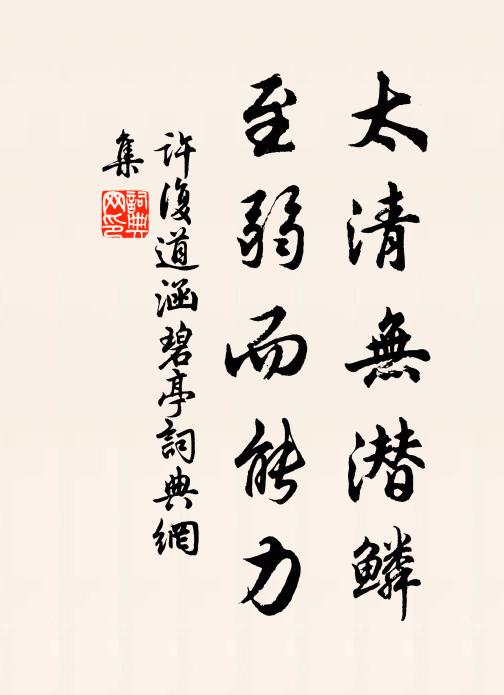 太清無潜鱗
至弱而能力
许復道涵碧亭詞典網
集
詞典
网印